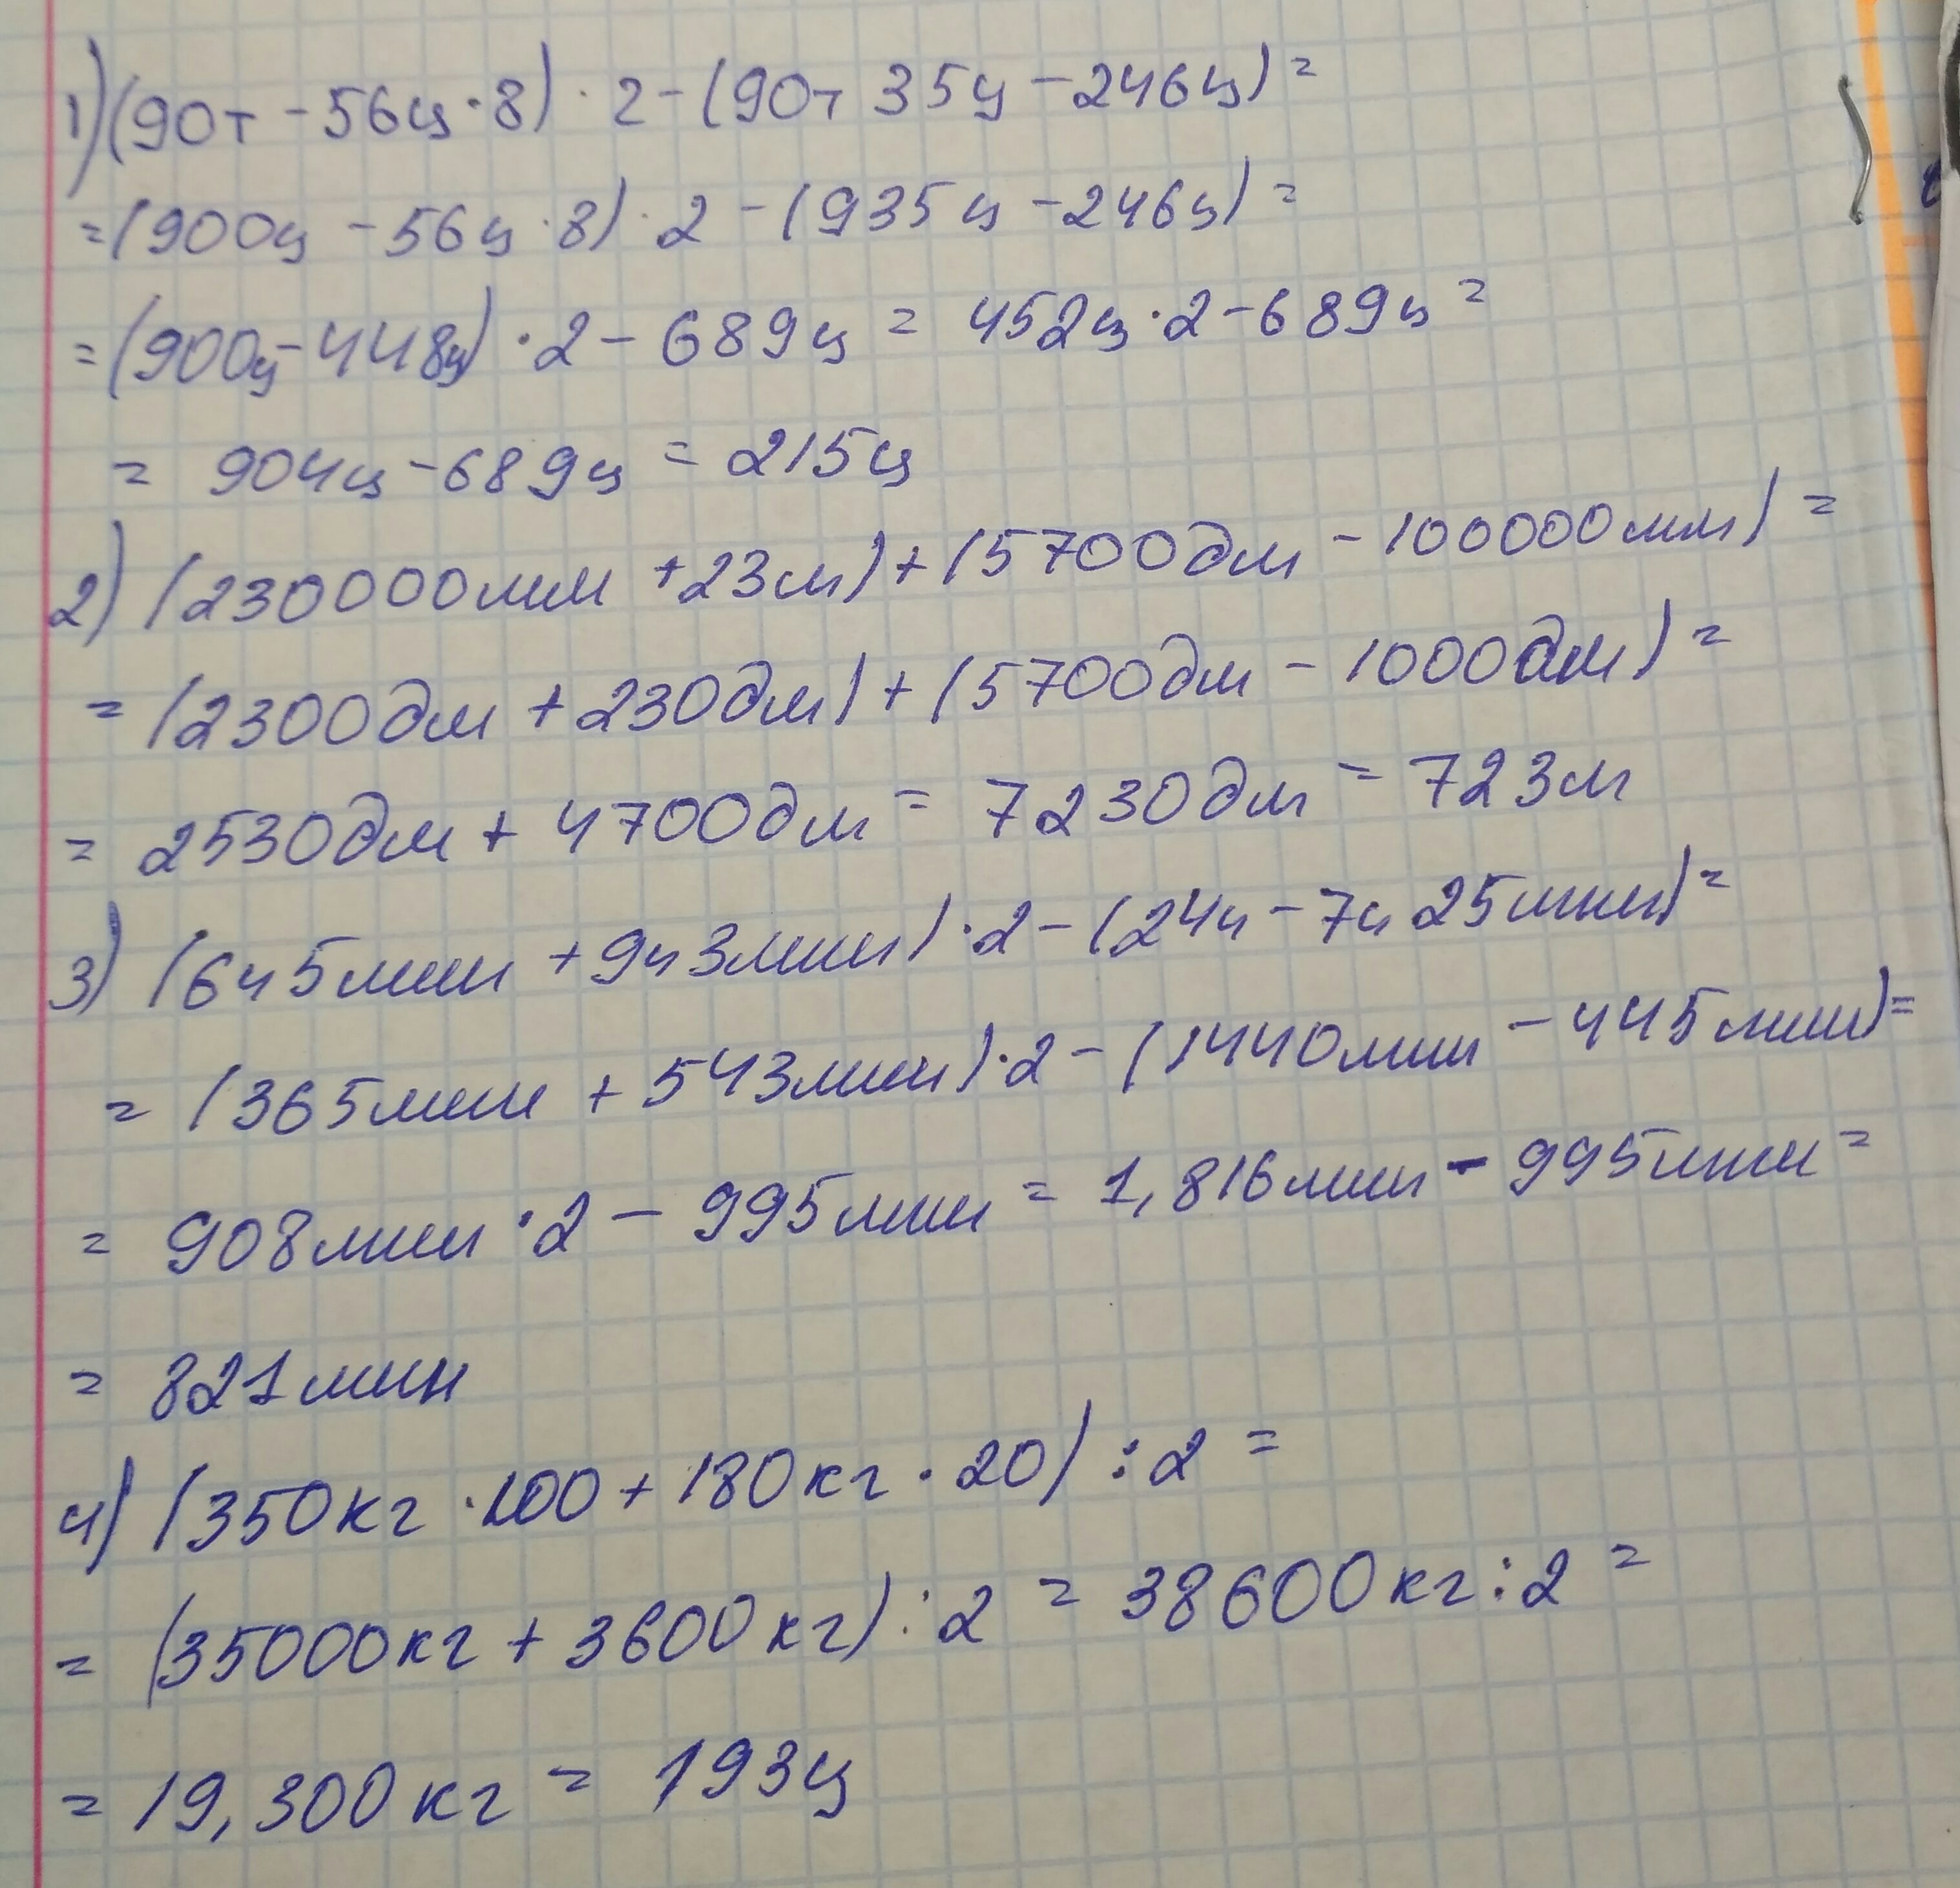 1) (90т - 56ц · 8) · 2 - (90т 35ц - 246ц) =
= (900ц - 56ц · 8) · 2 - (935ц - 246ц) =
= (900ц - 448ц) · 2 - 689ц = 452ц · 2 - 689ц =
= 904ц - 689ц = 215ц
2) (230000мм + 23м) + (5700дм - 100000мм) =
= (2300дм + 230дм) + (5700дм - 1000дм) =
= 2530дм + 4700дм = 7230дм = 723м
3) (6ч 5мин + 9ч 3мин) · 2 - (24ч - 7ч 25мин) =
= (365мин + 543мин) · 2 - (1440мин - 445мин) =
= 908мин · 2 - 995мин = 1,816мин - 995мин =
= 821мин
4) (350кг · 100 + 180кг · 20) : 2 =
= (35000кг + 3600кг) : 2 = 38600кг : 2 =
= 19,300кг = 193ц